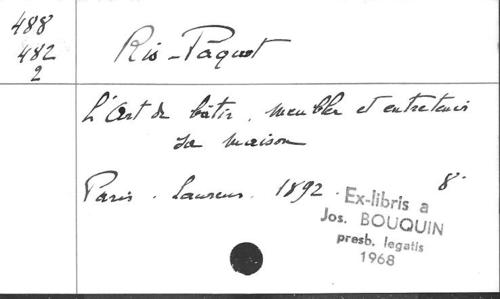 488
482
2
Ris-Paquot
L'Art de bâtir, meubler et entretenir
sa maison
Paris. Laurens. 1892. 8°
Ex-libris a
Jos. BOUQUIN
presb. legatis
1968